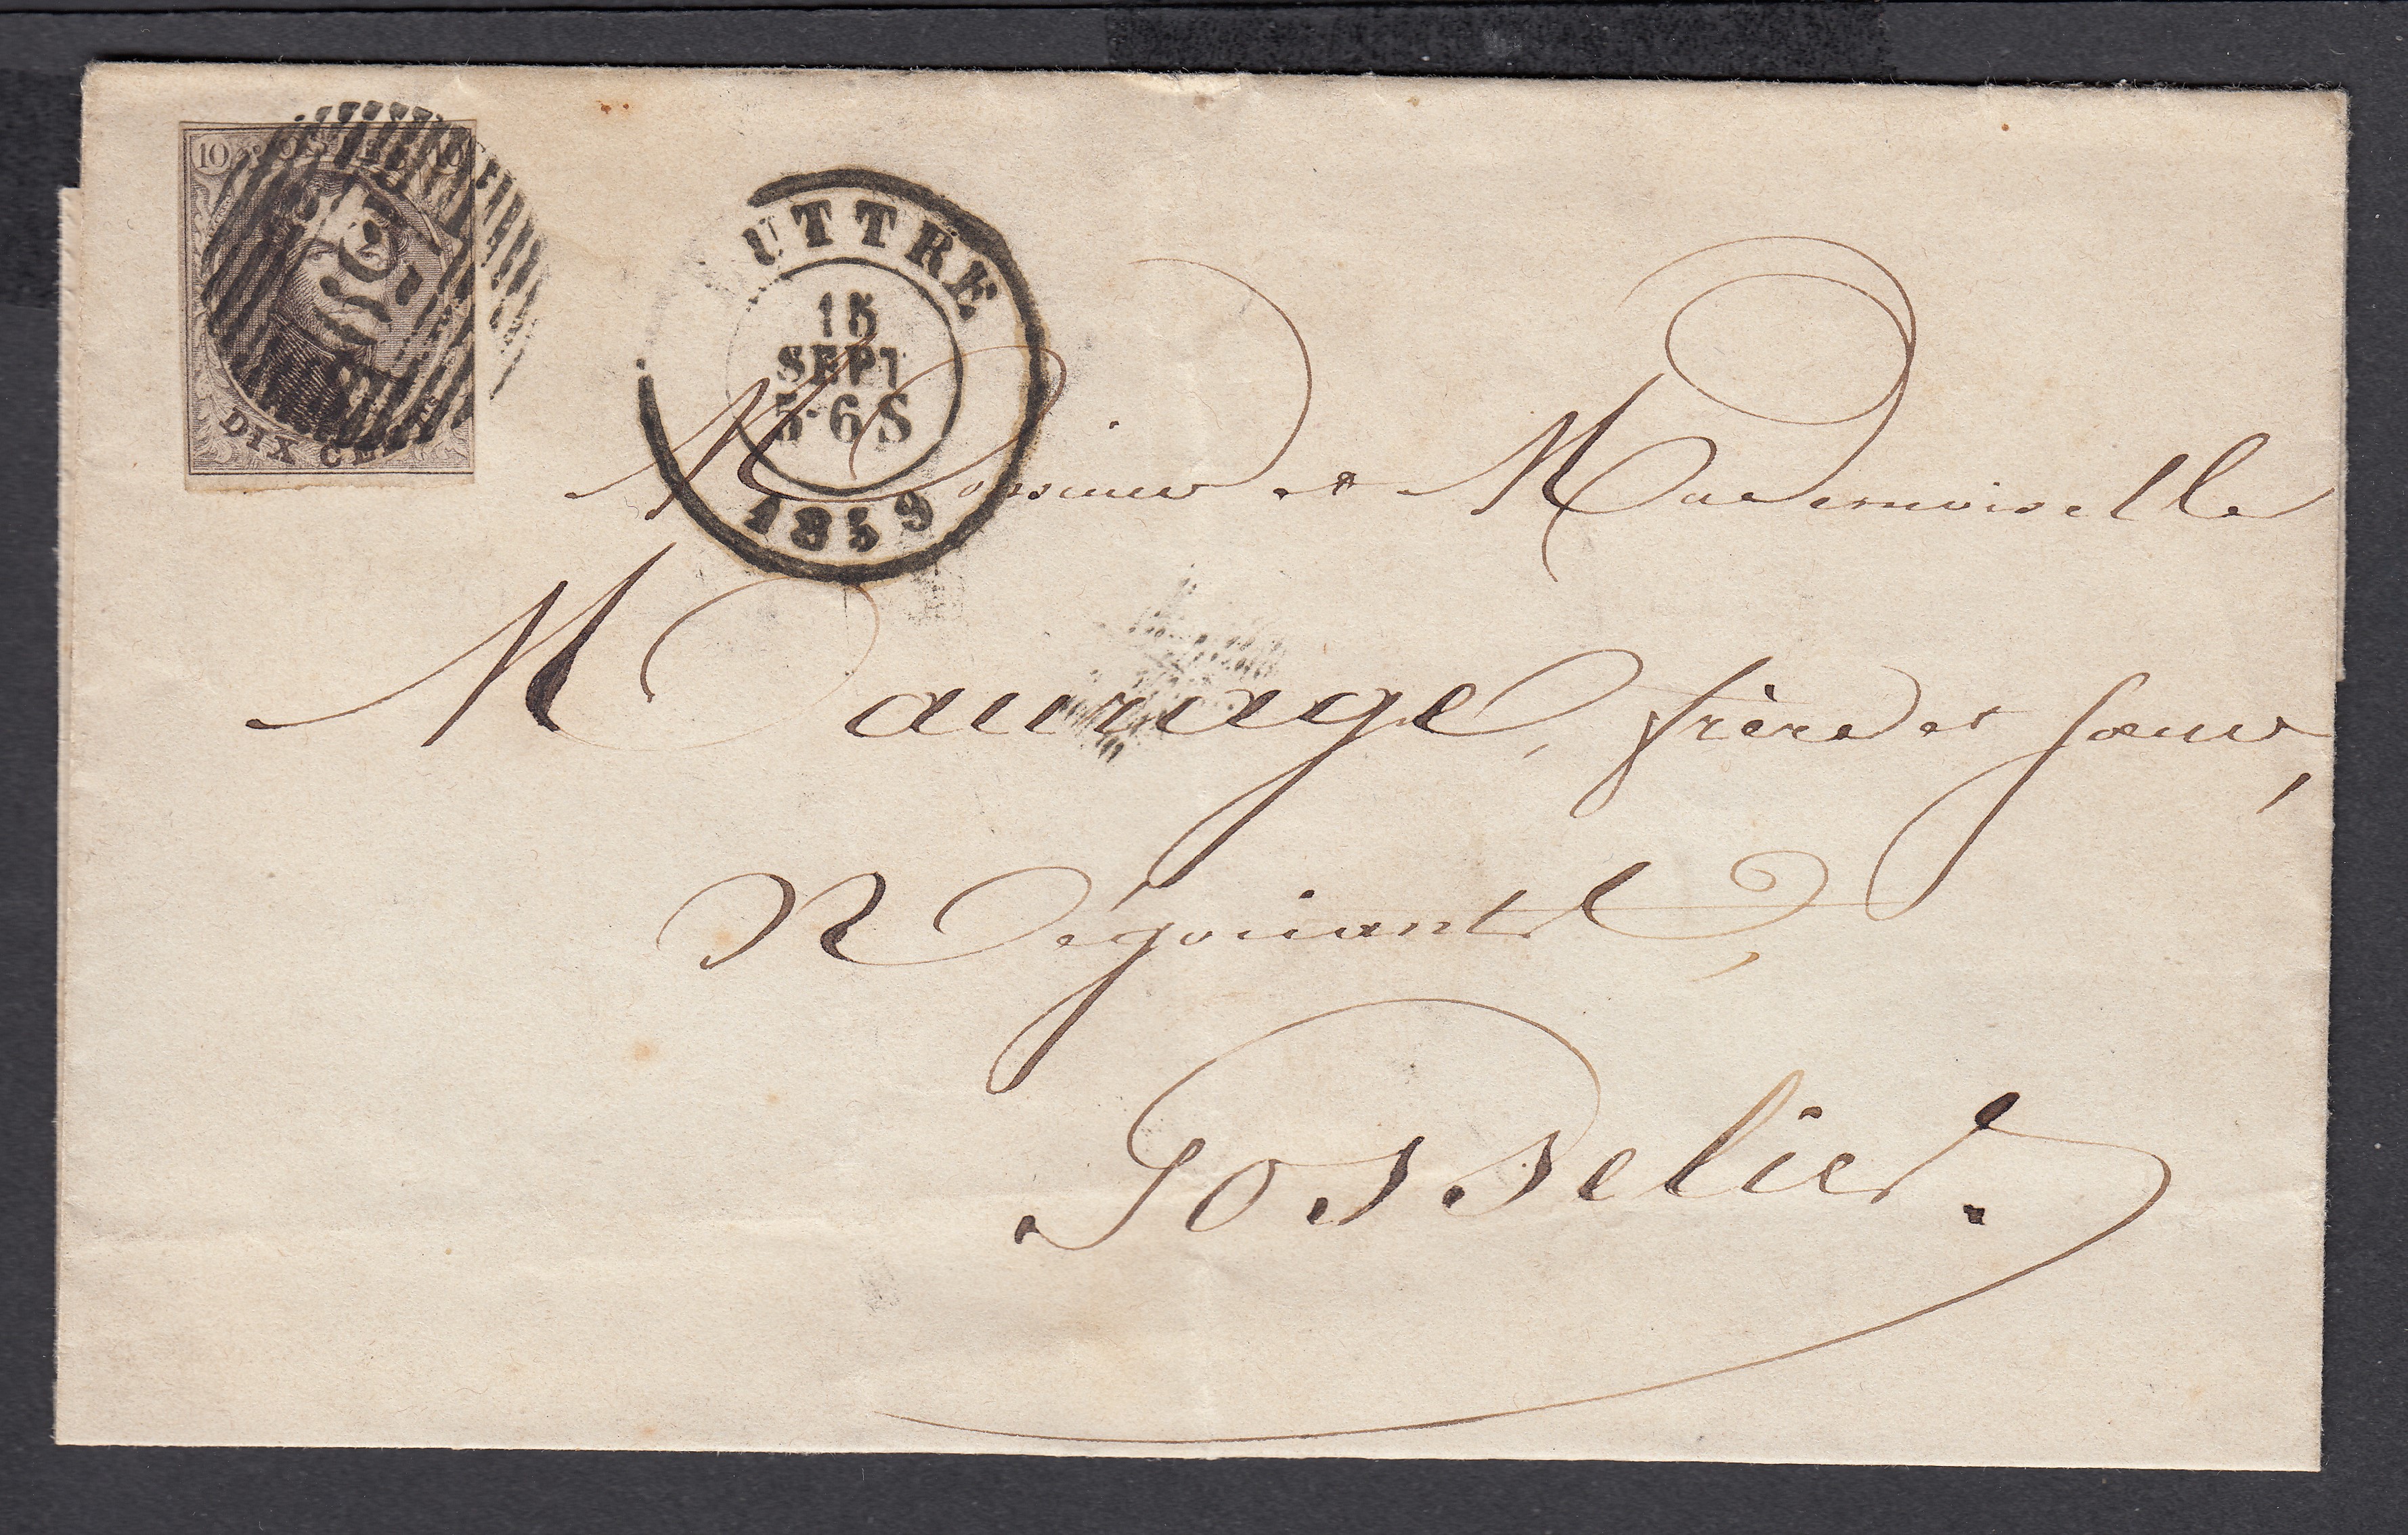 10 POSTES 10
DIX CENTS
UTTRE
15
SEPT
5-6 S
1859
Monsieur et Mademoiselle
Maurage, frère et sœur,
Négociants,
Gosselies.